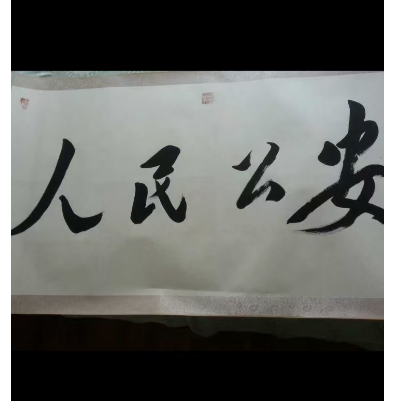 人民公安